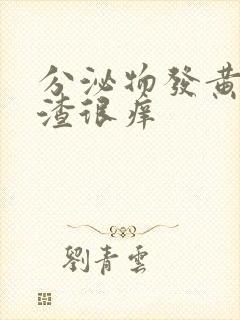 分泌物發黃
渣很痒
劉青雲